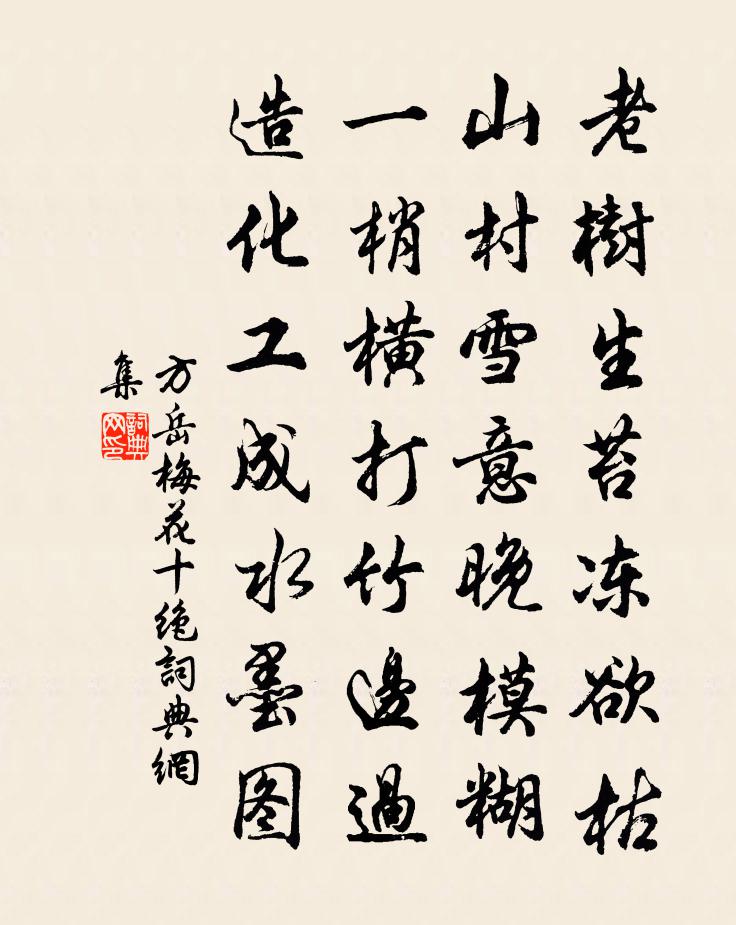 老樹生苔冻欲枯
山村雪意晚模糊
一梢横打竹邊過
造化工成水墨图
方岳梅花十絶詞典網
集
詞典
网印